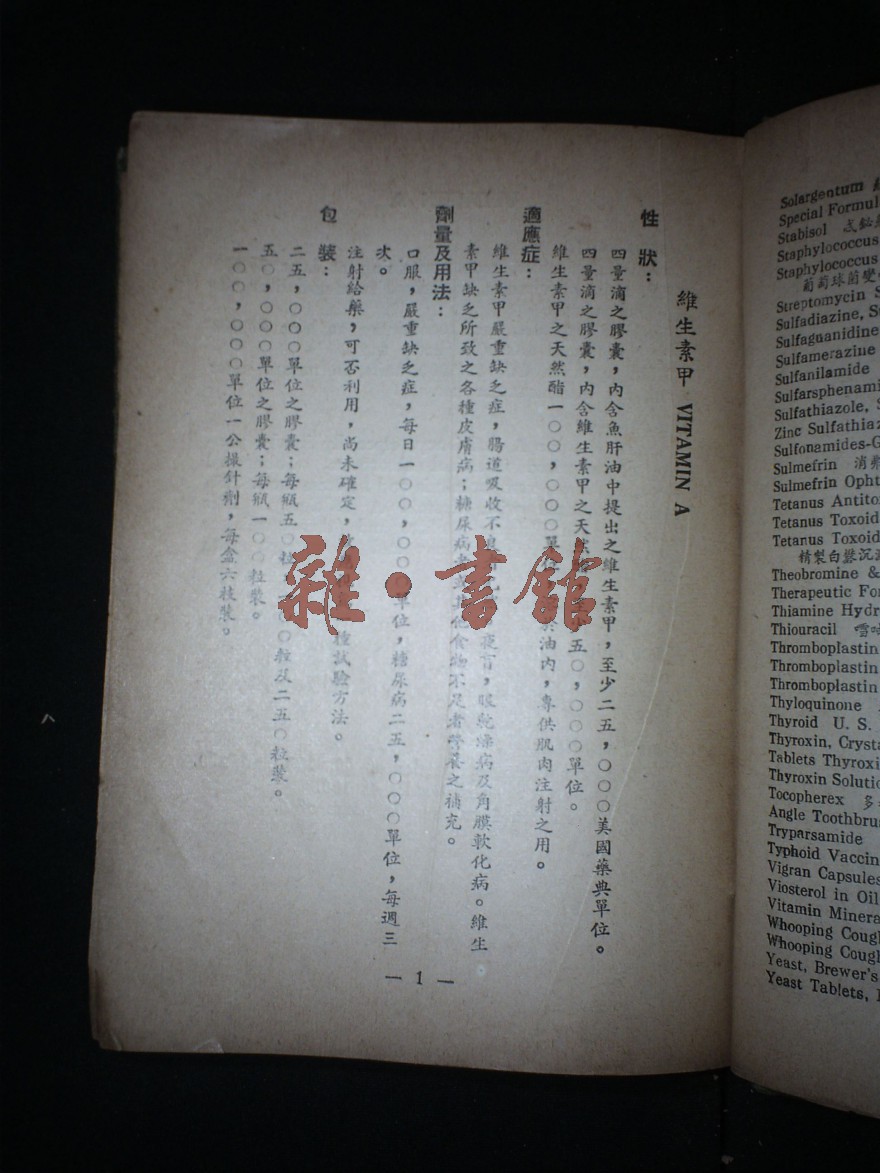 維生素甲 VITAMIN A
性狀：
四量滴之膠囊，內含魚肝油中提出之維生素甲，至少二五，○○○美國藥典單位。
四量滴之膠囊，內含維生素甲之天 五○，○○○單位。
維生素甲之天然酯一○○，○○○單 油內，專供肌肉注射之用。
適應症：
維生素甲嚴重缺乏症，腸道吸收不 夜盲，眼乾燥病及角膜軟化病。維生
素甲缺乏所致之各種皮膚病；糖尿病 食物不足者營養之補充。
劑量及用法：
口服，嚴重缺乏症，每日一○○，○○ 單位，糖尿病二五，○○○單位，每週三
次。
注射給藥，可否利用，尚未確定， 種試驗方法。
包裝：
二五，○○○單位之膠囊；每瓶五○粒 ○○粒及二五○粒裝。
五○，○○○單位之膠囊；每瓶一○○粒裝。
一○○，○○○單位一公撮針劑，每盒六枝裝。
— 1 —
雜·書館
Solargentum
Special Formul
Stabisol
Staphylococcus
Staphylococcus
葡萄球菌變
Streptomycin S
Sulfadiazine, S
Sulfaguanidine
Sulfamerazine
Sulfanilamide
Sulfarsphenami
Sulfathiazole, S
Zinc Sulfathiaz
Sulfonamides-G
Sulmefrin 消
Sulmefrin Opht
Tetanus Antito
Tetanus Toxoid
Tetanus Toxoid
精製白礬沉
Theobromine &
Therapeutic For
Thiamine Hydr
Thiouracil
Thromboplastin
Thromboplastin
Thromboplastin
Thyloquinone
Thyroid U. S.
Thyroxin, Crysta
Tablets Thyroxi
Thyroxin Solutio
Tocopherex 多
Angle Toothbru
Tryparsamide
Typhoid Vaccin
Vigran Capsules
Viosterol in Oil
Vitamin Minera
Whooping Coug
Whooping Cough
Yeast, Brewer's
Yeast Tablets,